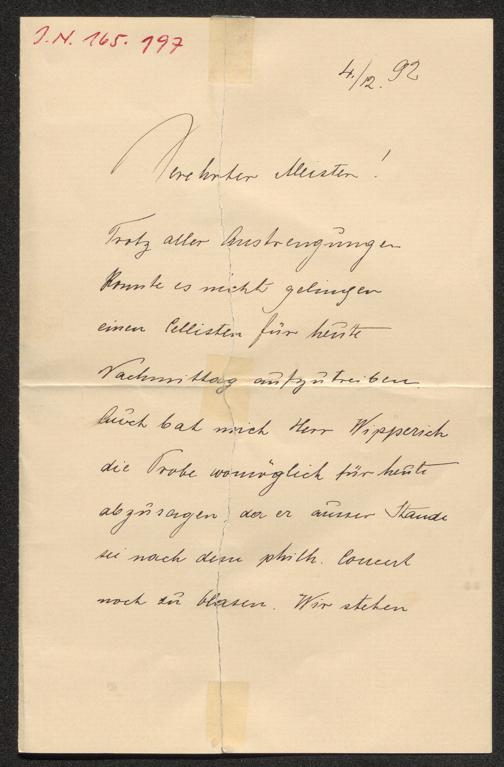 I.N. 165.197
4./12. 92
Verehrter Meister!
Trotz aller Anstrengungen
konnte es nicht gelingen
einen Cellisten für heute
Nachmittag aufzutreiben.
Auch bat mich Herr Wipperich
die Probe womöglich für heute
abzusagen, da er ausser Stande
sei nach dem philh. Concert
noch zu blasen. Wir stehen